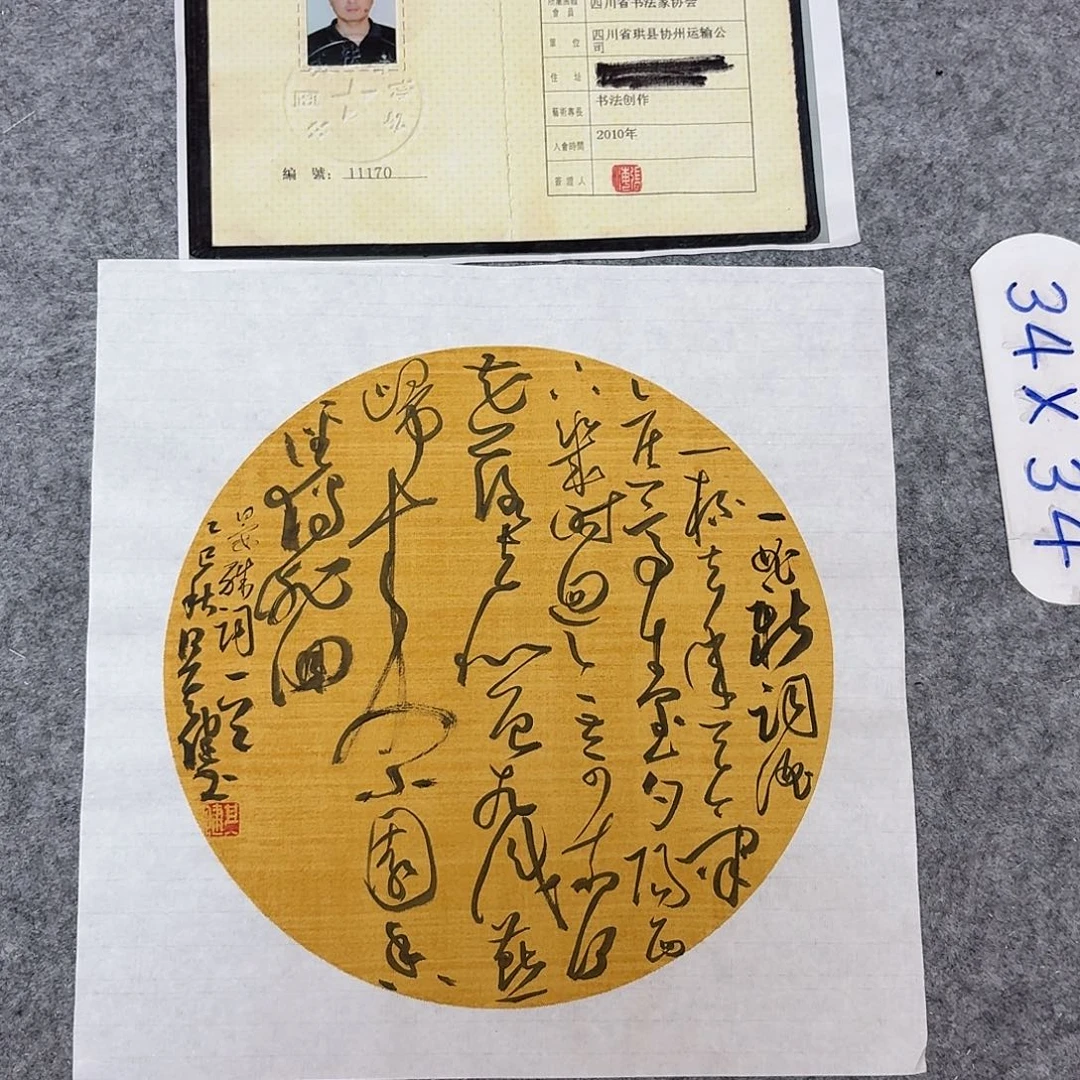 會員 四川省书法家协会
單位 四川省珙县协州运输公
司
住址
藝術專長 书法创作
入會時間 2010年
簽證人
編號：11170
34X34
一曲新词酒
一杯去年天气旧
亭台夕阳西
下几时回无可奈何
花落去似曾相识燕
归来小园香
径独徘徊
晏殊词一首
乙巳秋